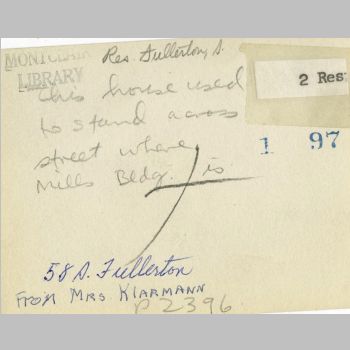 MONTCLAIR
LIBRARY
Res. Fullerton, S.
2 Res
this house used
to stand across
street where
Mills Bldg. is
1 97
58 S. Fullerton
From Mrs Klarmann
P 2396